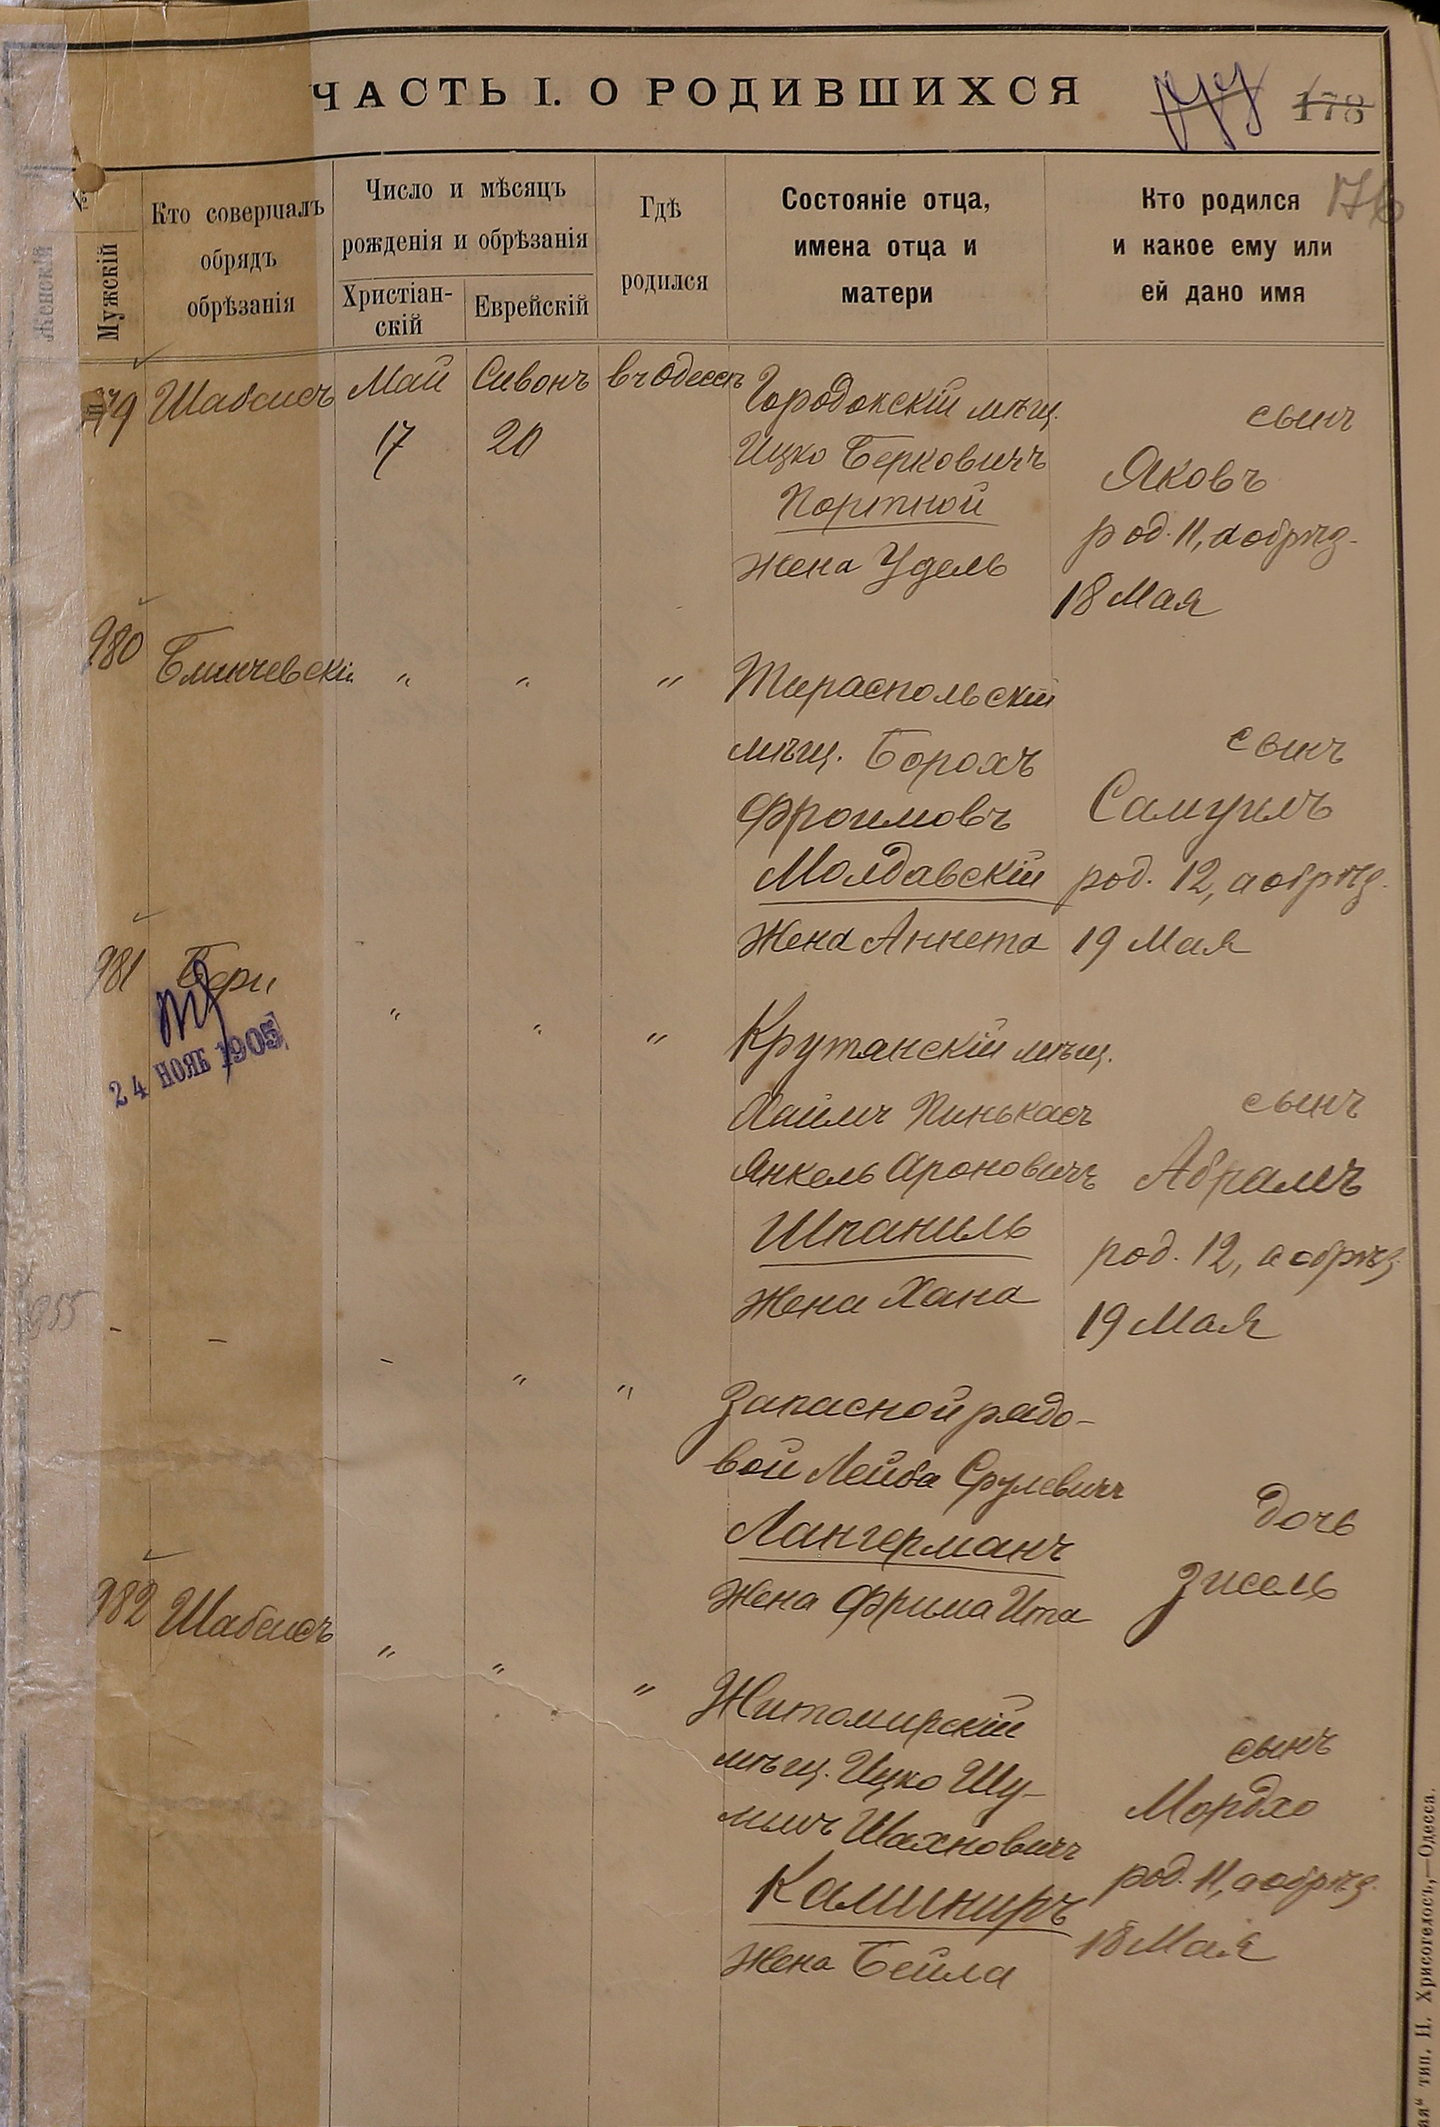 ЧАСТЬ I. О РОДИВШИХСЯ
178
176
№
Женскій
Мужскій
Кто совершалъ
обрядъ
обрѣзанія
Число и мѣсяцъ
рожденія и обрѣзанія
Христіан-
скій
Еврейскій
Гдѣ
родился
Состояніе отца,
имена отца и
матери
Кто родился
и какое ему или
ей дано имя
979 Шабсисъ Май Сивонъ въ Одессѣ
17 20
Городокскій мѣщ.
Ицко Берковичъ
Портной
жена Удель
сынъ
Яковъ
род. 11, а обрѣз.
18 Мая
980 Блинчевскій " " "
Тираспольскій
мѣщ. Борохъ
Фроимовъ
Молдавскій
жена Аннета
сынъ
Самуилъ
род. 12, а обрѣз.
19 Мая
981
24 НОЯБ 1905
" " "
Крутянскій мѣщ.
Хаимъ Пинькасъ
Янкель Ароновичъ
Шпаниль
жена Хана
сынъ
Абрамъ
род. 12, а обрѣз.
19 Мая
955 - - - " "
Запасной рядо-
вой Лейба Срулевичъ
Лангерманъ
жена Фрима Ита
дочь
Зисель
982 Шабсисъ " " "
Житомирскій
мѣщ. Ицко Шу-
лимъ Шахновичъ
Калиниръ
жена Бейла
сынъ
Мордхо
род. 11, а обрѣз.
18 Мая
тип. И. Хрисогелосъ,—Одесса.